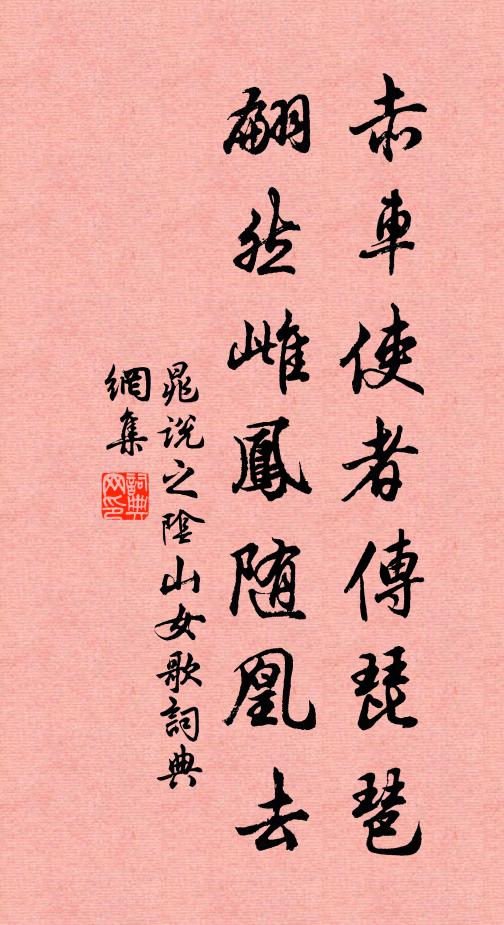 赤車使者傳琵琶
翩然雌鳳随凰去
晁說之陰山女歌詞典
網集
詞典网印